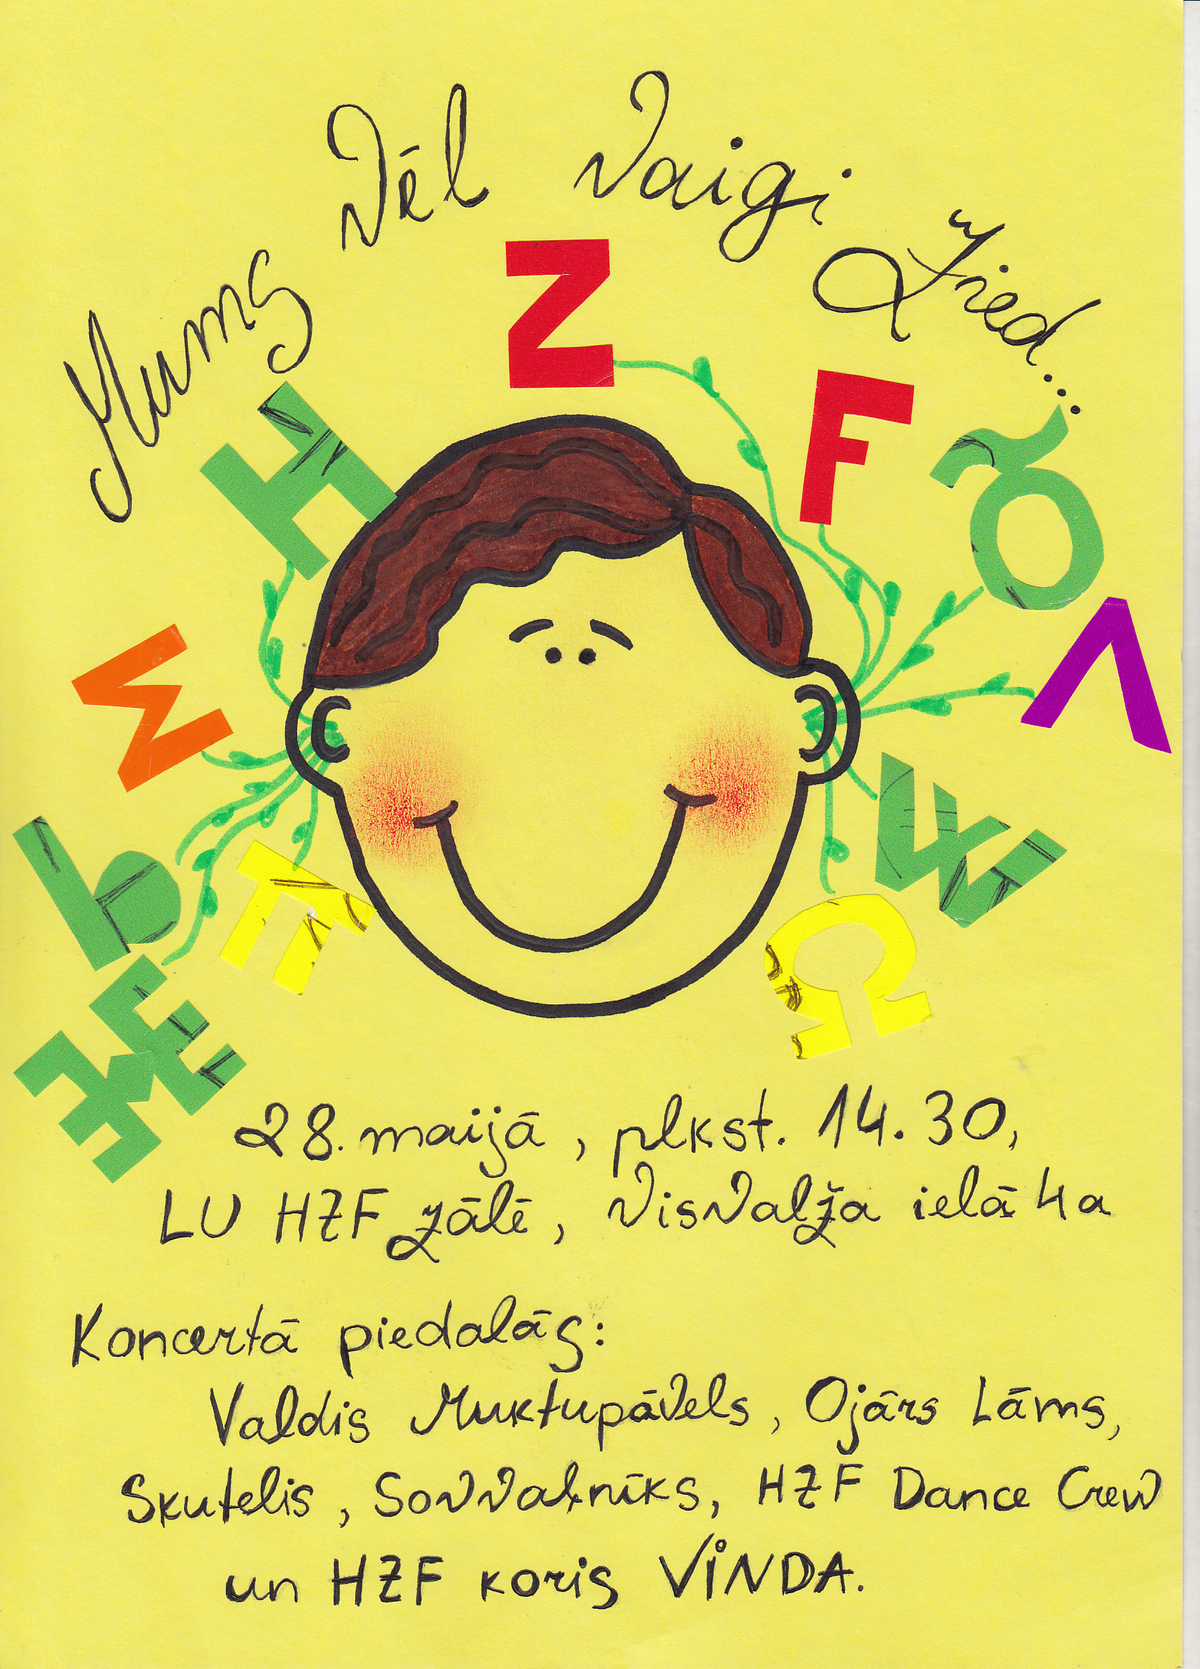 Mums Vēl Vaigi Zied...
H Z F Õ Λ
Σ W
E Ω
Ж
28. maijā, plkst. 14.30,
LU HZF zālē, VisValža ielā 4a
Koncertā piedalās:
Valdis Muktupāvels, Ojārs Lāms,
Skutelis, Sovvaļnīks, HZF Dance Crew
un HZF koris VINDA.